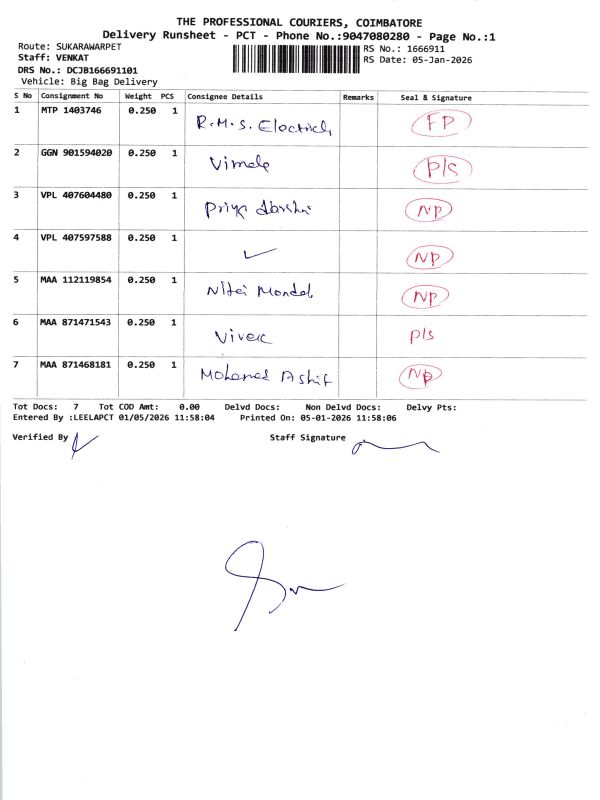 THE PROFESSIONAL COURIERS, COIMBATORE
Delivery Runsheet - PCT - Phone No.:9047080280 - Page No.:1
Route: SUKARAWARPET
RS No.: 1666911
Staff: VENKAT
RS Date: 05-Jan-2026
DRS No.: DCJB166691101
Vehicle: Big Bag Delivery
S No Consignment No Weight PCS Consignee Details Remarks Seal & Signature
1 MTP 1403746 0.250 1 R.M.S. FP
2 GGN 901594020 0.250 1 Vimala P/S
3 VPL 407604480 0.250 1 Priya NP
4 VPL 407597588 0.250 1 ✓ NP
5 MAA 112119854 0.250 1 Nitai Mondal NP
6 MAA 871471543 0.250 1 Vivek P/S
7 MAA 871468181 0.250 1 Mohamed Ashif NP
Tot Docs: 7 Tot COD Amt: 0.00 Delvd Docs: Non Delvd Docs: Delvy Pts:
Entered By :LEELAPCT 01/05/2026 11:58:04 Printed On: 05-01-2026 11:58:06
Verified By Staff Signature